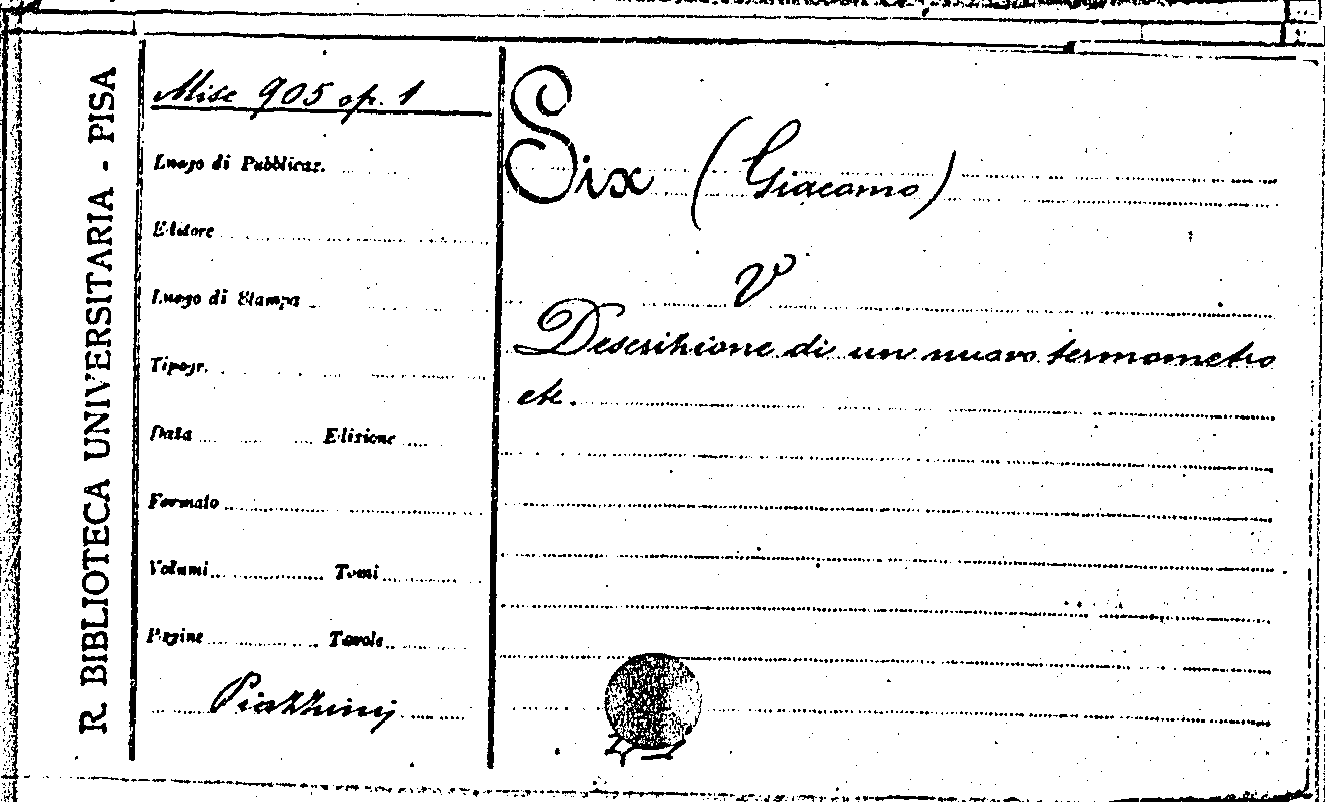 R. BIBLIOTECA UNIVERSITARIA - PISA
Misc 905 op. 1
Luogo di Pubblicaz.
Editore
Luogo di Stampa
Tipogr.
Data Edizione
Formato
Volumi Tomi
Pagine Tavole
Piazzinij
Six (Giacomo)
V
Descrizione di un nuovo termometro
etc.